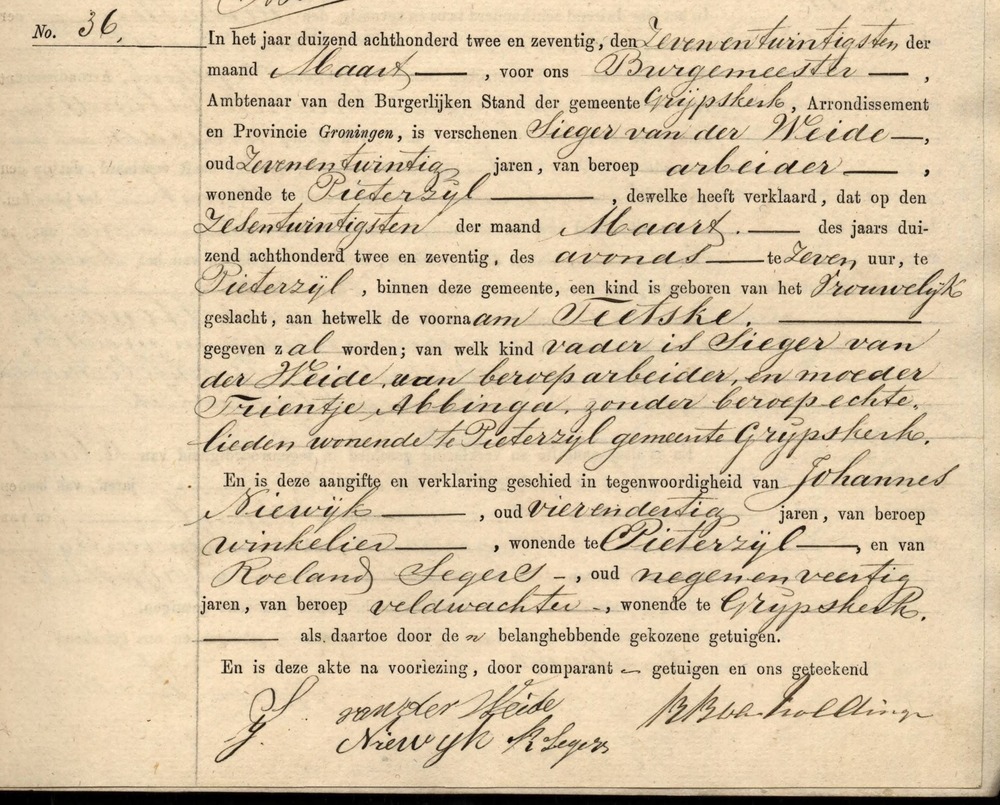 No. 36,
In het jaar duizend achthonderd twee en zeventig, den Zevenentwintigsten der
maand Maart —, voor ons Burgemeester —,
Ambtenaar van den Burgerlijken Stand der gemeente Grijpskerk, Arrondissement
en Provincie Groningen, is verschenen Sieger van der Weide —,
oud Zevenentwintig jaren, van beroep arbeider —,
wonende te Pieterzijl —, dewelke heeft verklaard, dat op den
Zesentwintigsten der maand Maart. — des jaars dui-
zend achthonderd twee en zeventig, des avonds — te Zeven uur, te
Pieterzijl, binnen deze gemeente, een kind is geboren van het Vrouwelijk
geslacht, aan hetwelk de voornaam Tietske. —
gegeven zal worden; van welk kind vader is Sieger van
der Weide, van beroep arbeider, en moeder
Trientje Abbinga, zonder beroep echte-
lieden wonende te Pieterzijl gemeente Grijpskerk.
En is deze aangifte en verklaring geschied in tegenwoordigheid van Johannes
Niewijk —, oud vierendertig jaren, van beroep
winkelier —, wonende te Pieterzijl —, en van
Roeland Segers -, oud negenenveertig
jaren, van beroep veldwachter -, wonende te Grijpskerk.
— als daartoe door de n belanghebbende gekozene getuigen.
En is deze akte na voorlezing, door comparant — getuigen en ons geteekend
S van der Weide
J. Niewijk R Segers